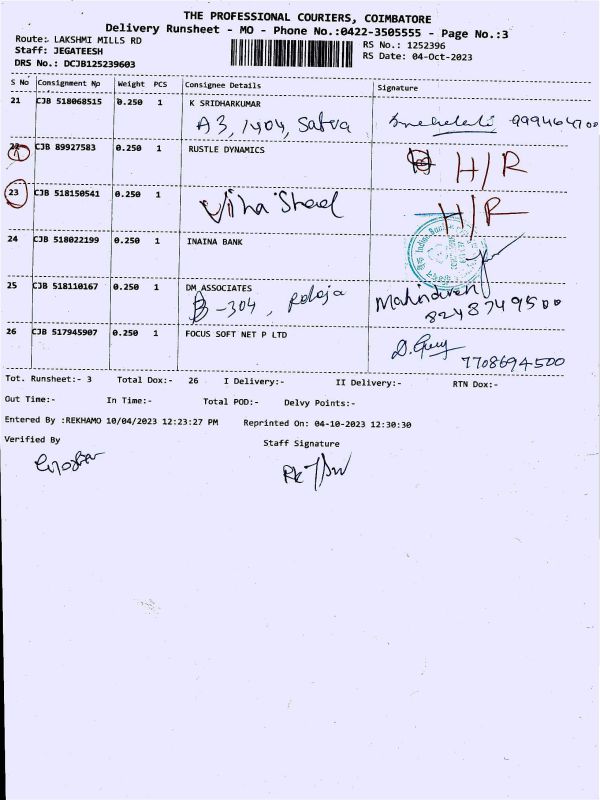 THE PROFESSIONAL COURIERS, COIMBATORE
Delivery Runsheet - MO - Phone No.:0422-3505555 - Page No.:3
Route: LAKSHMI MILLS RD
RS No.: 1252396
Staff: JEGATEESH
RS Date: 04-Oct-2023
DRS No.: DCJB125239603
S No Consignment Np Weight PCS Consignee Details Signature
21 CJB 518068515 0.250 1 K SRIDHARKUMAR
A3, 1404, Satva
22 CJB 89927583 0.250 1 RUSTLE DYNAMICS H/R
23 CJB 518150541 0.250 1
H/R
24 CJB 518022199 0.250 1 INAINA BANK
25 CJB 518110167 0.250 1 DM ASSOCIATES
B-304,
8248749500
26 CJB 517945907 0.250 1 FOCUS SOFT NET P LTD
7708694500
Tot. Runsheet:- 3 Total Dox:- 26 I Delivery:- II Delivery:- RTN Dox:-
Out Time:- In Time:- Total POD:- Delvy Points:-
Entered By :REKHAMO 10/04/2023 12:23:27 PM Reprinted On: 04-10-2023 12:30:30
Verified By Staff Signature